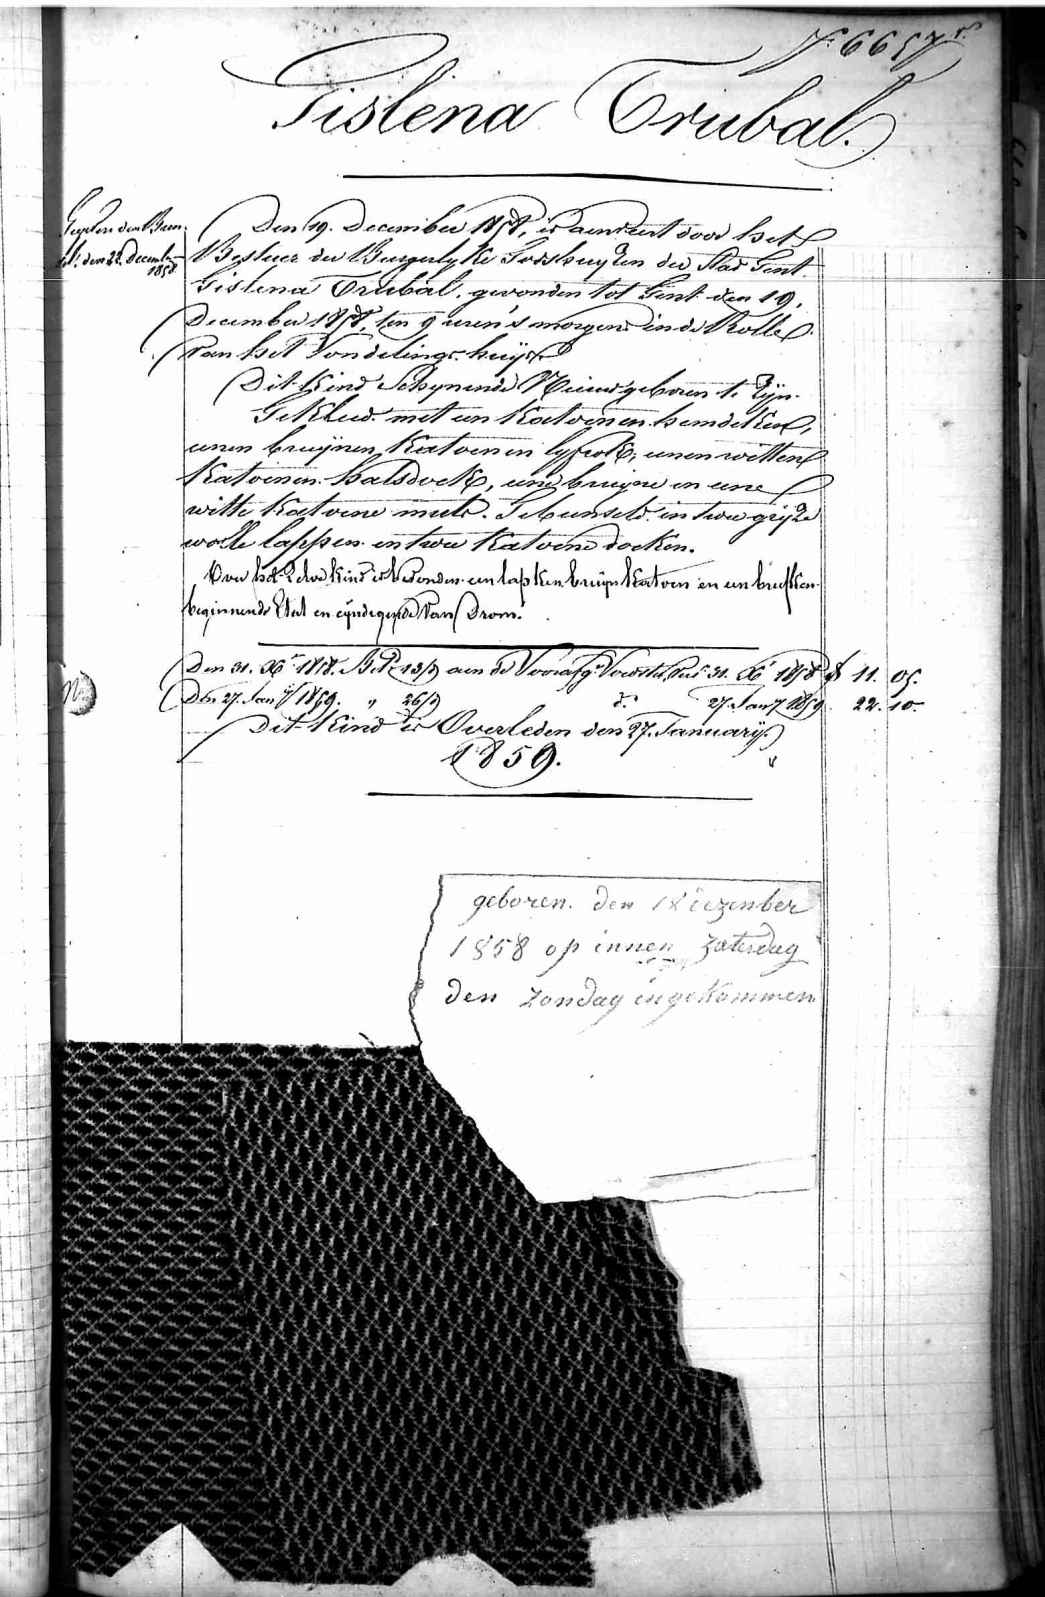 6657
Gislena Trubal.
den 22. December
1858
Den 19. December 1858, is aenveert door het
Bestuer der Burgerlyke Godshuyzen der Stad Gent
Gislena Trubal, gevonden tot Gent den 19.
December 1858, ten 9 uren 's morgens in de Rolle
van het Vondelingshuys
Dit Kind Schynende Nieuwgeboren te Zyn.
Gekleed met een Katoenen hemdeken,
eenen bruynen Katoenen lyfrok, eenen witten
Katoenen halsdoek, eene bruyne en eene
witte Katoene muts. Gebunseld in twee gryze
wolle lappen en twee Katoene doeken.
Over het Zelve kind is bevonden een lapken bruyn katoen en een briefken
beginnende en eyndigende
Den 31. Xb. 1858. aen de 31. Xb 1858 11. 05.
Den 27. Jany 1859. " 26 d° 27. Jany 1859 22. 10.
Dit Kind is Overleden den 27. January
1859.
geboren den 18 dezenber
1858 op innen zaterdag
den zondag ingekommen